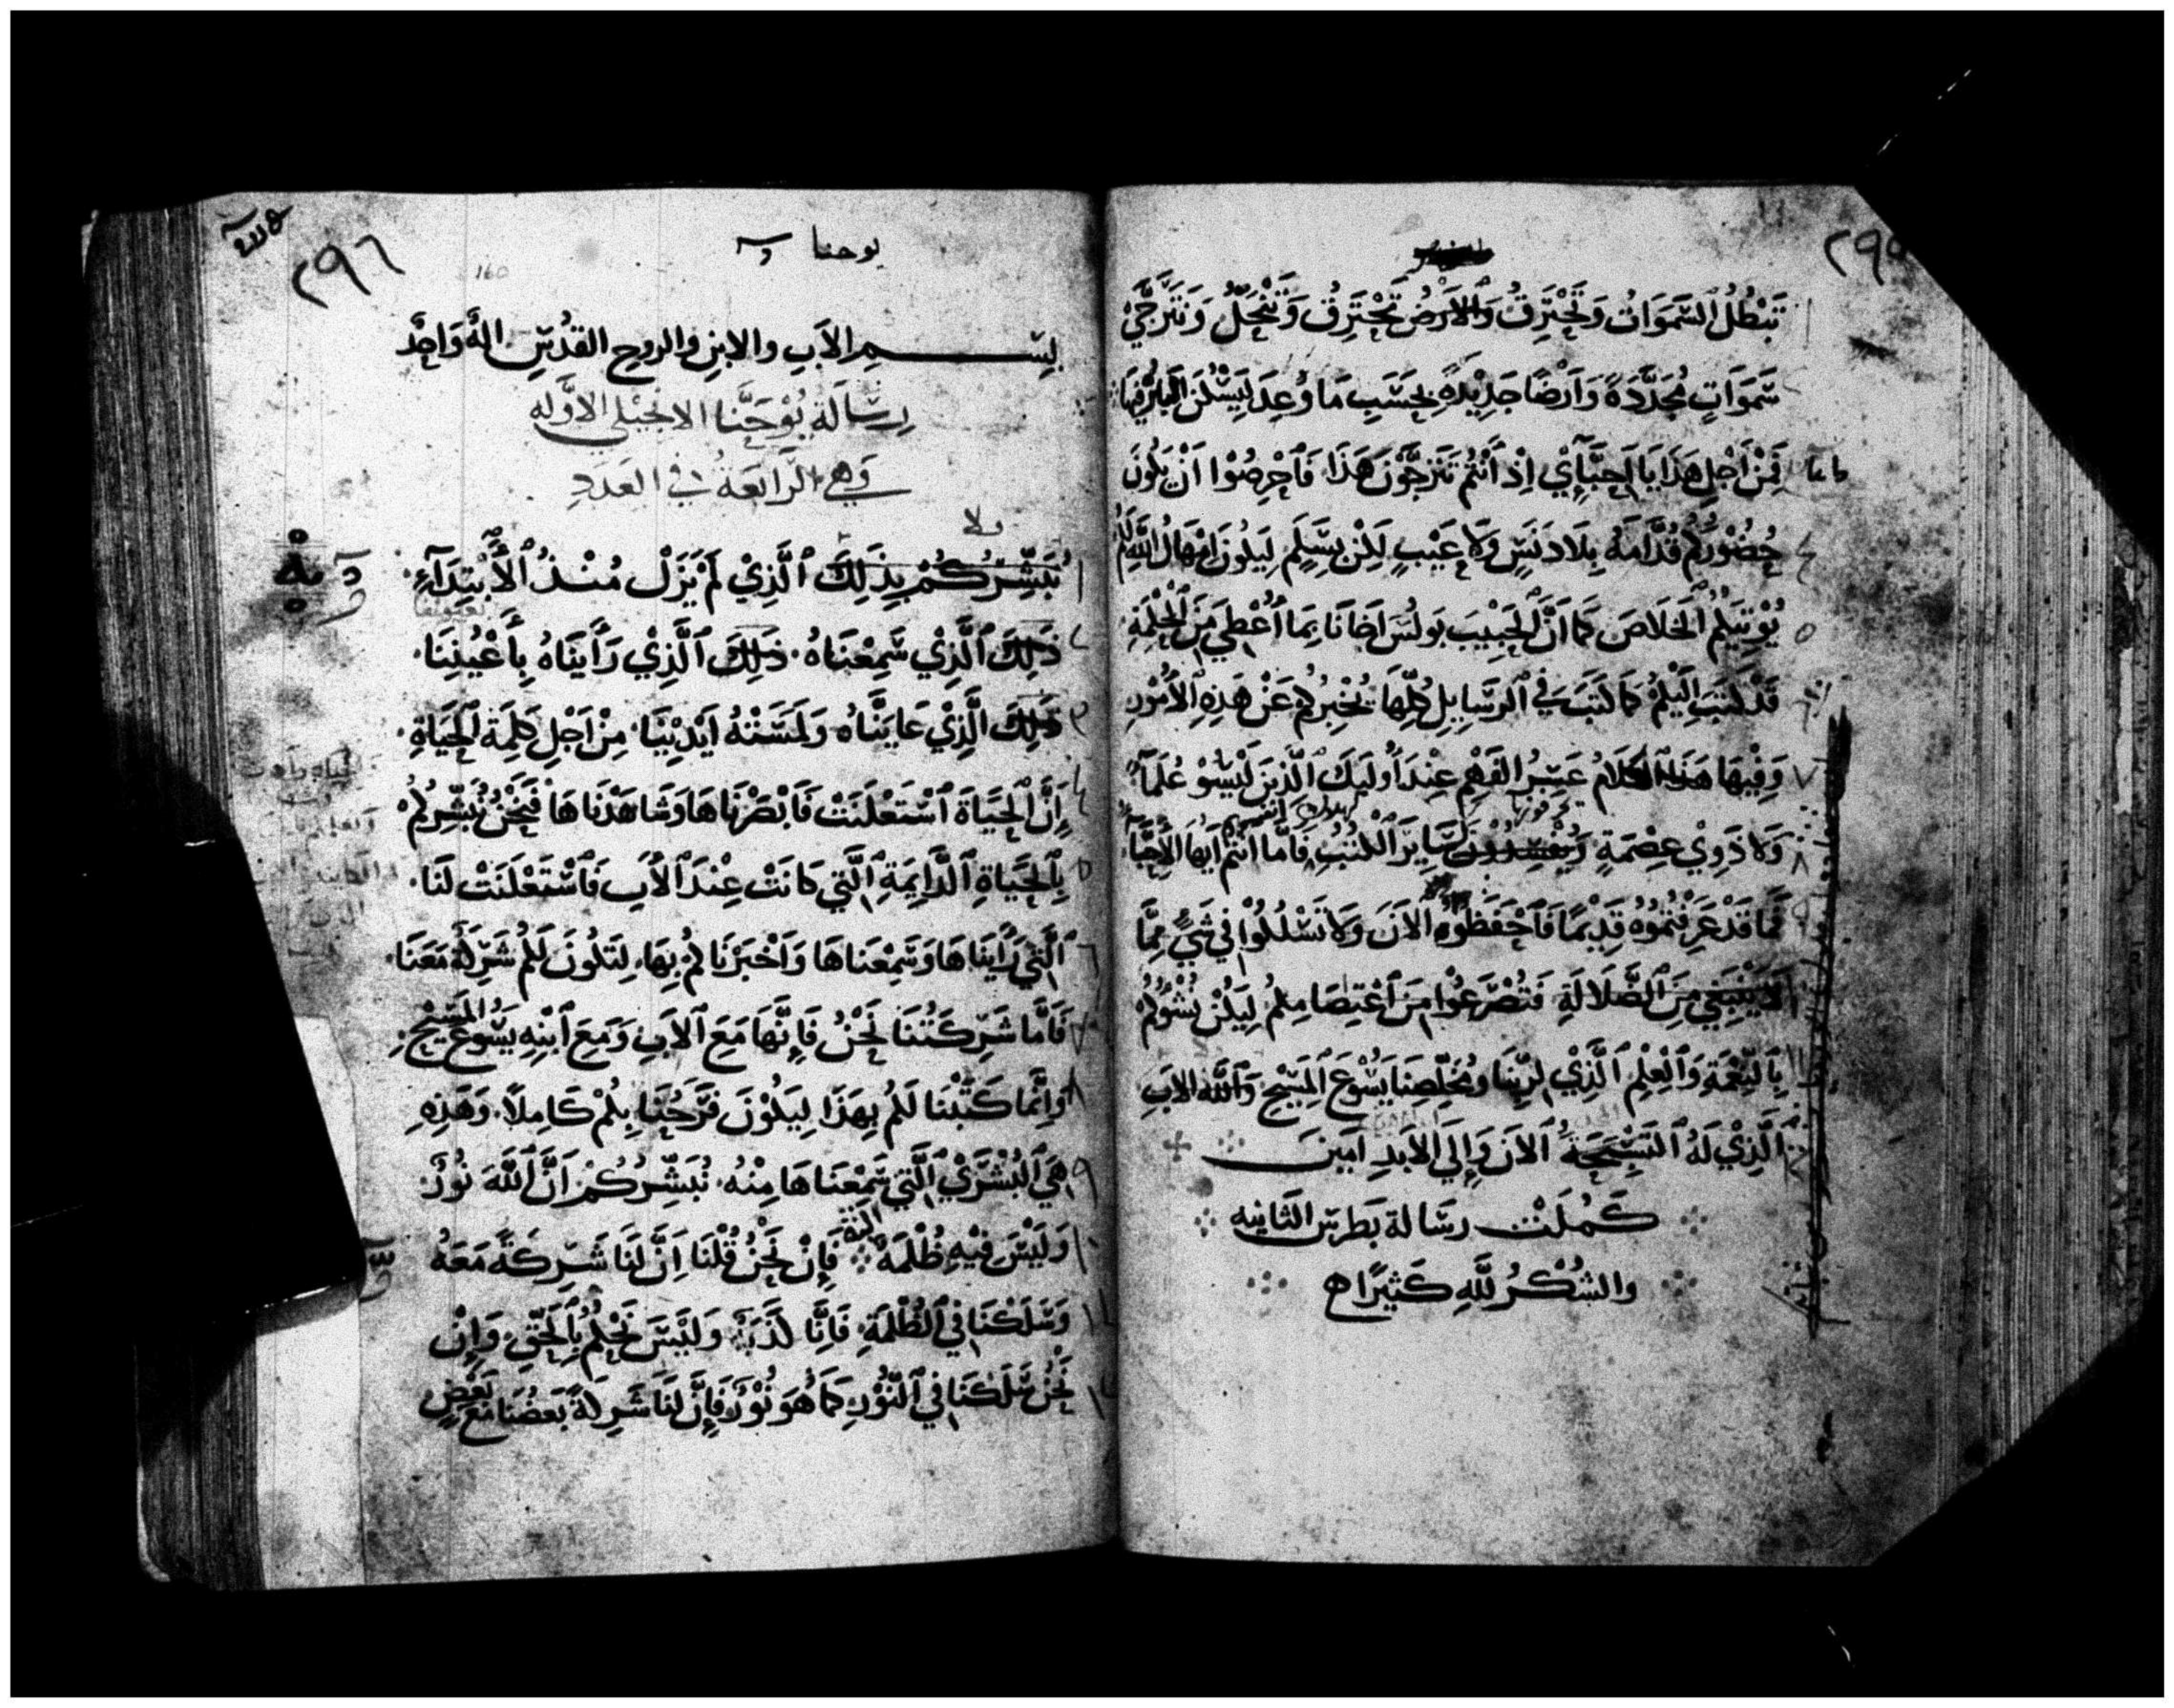 ٢٩٥
تَبْطُلُ ٱلسَّمَوَاتُ وَتَحْتَرِقُ وَٱلاَرْضُ تَحْتَرِقُ وَتَنْحَلُّ وَنَتَرَجَّيْ
سَمَوَاتٍ مُجَدَّدَةً وَاَرْضًا جَدِيْدَةً بِحَسَبِ مَا وُعِدَ لِيَسْكُنَ البِرُّ فِيهَا
فَمِنْ اَجْلِ هَذَا يَا اَحِبَّآئِيْ اِذْ اَنْتُمْ تَتَرَجَّوْنَ هَذَا فَٱحْرِصُوْا اَنْ يَكُونَ
حُضُوْرُكُمْ قُدَّامَهُ بِلَا دَنَسٍ وَلَا عَيْبٍ لَكِنْ بِسِلْمٍ لِيَكُونَ اِمْهَالُ اللَّهِ لَكُمْ
يُوْتِيْكُمُ ٱلْخَلَاصَ كَمَا اَنَّ ٱلْحَبِيْبَ بَولُسَ اَخَانَا بِمَا اُعْطِيَ مِنَ ٱلْحِكْمَةِ
قَدْ كَتَبَ اِلَيْكُمْ كَمَا كَتَبَ فِي ٱلرَّسَايِلِ كُلِّهَا يُخْبِرُكُمْ عَنْ هَذِهِ ٱلاُمُوْرِ
وَفِيْهَا هَذَا ٱلْكَلَامُ عَسِرُ الفَهْمِ عِنْدَ اُولَيِكَ ٱلَّذِينَ لَيْسُوْ عُلَمَآءَ
وَلَا ذَوِيْ عِصْمَةٍ وَيُفْسِدُوْنَ سَايِرَ ٱلْكُتُبِ فَامَّا اَنْتُمْ اَيُّهَا ٱلاَحِبَّآءُ
فَمَا قَدْ عَرَفْتُمُوْهُ قَدِيْمًا فَٱحْفَظُوْهُ ٱلاَنَ وَلَا تَسْلُكُوْا فِي شَيْءٍ مِمَّا
لَا يَنْبَغِي مِنَ ٱلضَّلَالَةِ فَتُصْرَعُوْا مِنَ ٱعْتِصَامِكُمْ لِيَكُنْ نُشُوْكُمْ
بِٱلنِّعْمَةِ وَٱلْعِلْمِ ٱلَّذِيْ لِرَبِّنَا وَمُخَلِّصِنَا يَسُوْعَ ٱلْمَسِيْحِ وَٱللَّهِ الاَبِ
ٱلَّذِيْ لَهُ ٱلتَّسْبِحَةُ ٱلاَنَ وَاِلَي ٱلاَبَدِ اَمِينَ
كَمُلَتْ رسَالة بَطرسَ الثَّانيه
والشُكْرُ للَّهِ كَثِيرًا
٢٩٦
يوحنا
160
بِسْمِ الاَبِ والابنِ والروحِ القدُسِ الهٌ وَاحِدٌ
رِسَالَة يُوْحَنَّا الانجيلي الاوَّله
وَهي الرَّابعَةُ في العَدَدِ
نُبَشِّرُكُمْ بِذَلِكَ ٱلَّذِيْ لَمْ يَزَلْ مُنْذُ ٱلْاَبْتِدَآءِ
ذَلِكَ ٱلَّذِيْ سَمِعْنَاهُ ذَلِكَ ٱلَّذِيْ رَاَيْنَاهُ بِاَعْيُنِنَا
ذَلِكَ الَّذِيْ عَايَنَّاهُ وَلَمَسَتْهُ اَيْدِيْنَا مِنْ اَجْلِ كَلِمَةِ ٱلْحَيَاةِ
اِنَّ ٱلْحَيَاةَ ٱسْتَعْلَنَتْ فَاَبْصَرْنَاهَا وَشَاهَدْنَاهَا فَنَحْنُ نُبَشِّرُكُمْ
بِٱلْحَيَاةِ ٱلدَّايِمَةِ ٱلَّتِي كَانَتْ عِنْدَ ٱلْاَبِ فَٱسْتَعْلَنَتْ لَنَا
ٱلَّتِي رَاَيْنَاهَا وَسَمِعْنَاهَا وَاَخْبَرْنَاكُمْ بِهَا لِتَكُونَ لَكُمْ شَرِكَةٌ مَعَنَا
فَاَمَّا شَرِكَتُنَا نَحْنُ فَاِنَّهَا مَعَ ٱلاَبِ وَمَعَ ٱبْنِهِ يَسُوْعَ المَسِيْحِ
وَاِنَّمَا كَتَبْنَا لَكُمْ بِهَذَا لِيَكُوْنَ فَرَحُنَا بِكُمْ كَامِلًا وَهَذِهِ
هِيَ ٱلْبُشْرَيْ ٱلَّتِي سَمِعْنَاهَا مِنْهُ نُبَشِّرُكُمْ اَنَّ ٱللَّهَ نُورٌ
وَلَيْسَ فِيْهِ ظُلْمَةٌ البتة فَاِنْ نَحْنُ قُلْنَا اِنَّ لَنَا شَرِكَةً مَعَهُ
وَسَلَكْنَا فِي ٱلظُلْمَةِ فَاِنَّا كَذَبَةٌ وَلَيْسَ نَحْكُمُ بِٱلْحَقِّ وَاِنْ
نَحْنُ سَلَكْنَا فِي ٱلنُّوْرِ كَمَا هُوَ نُوْرٌ فَاِنَّ لَنَا شَرِكَةً بَعْضُنَا مَعَ بَعْضٍ